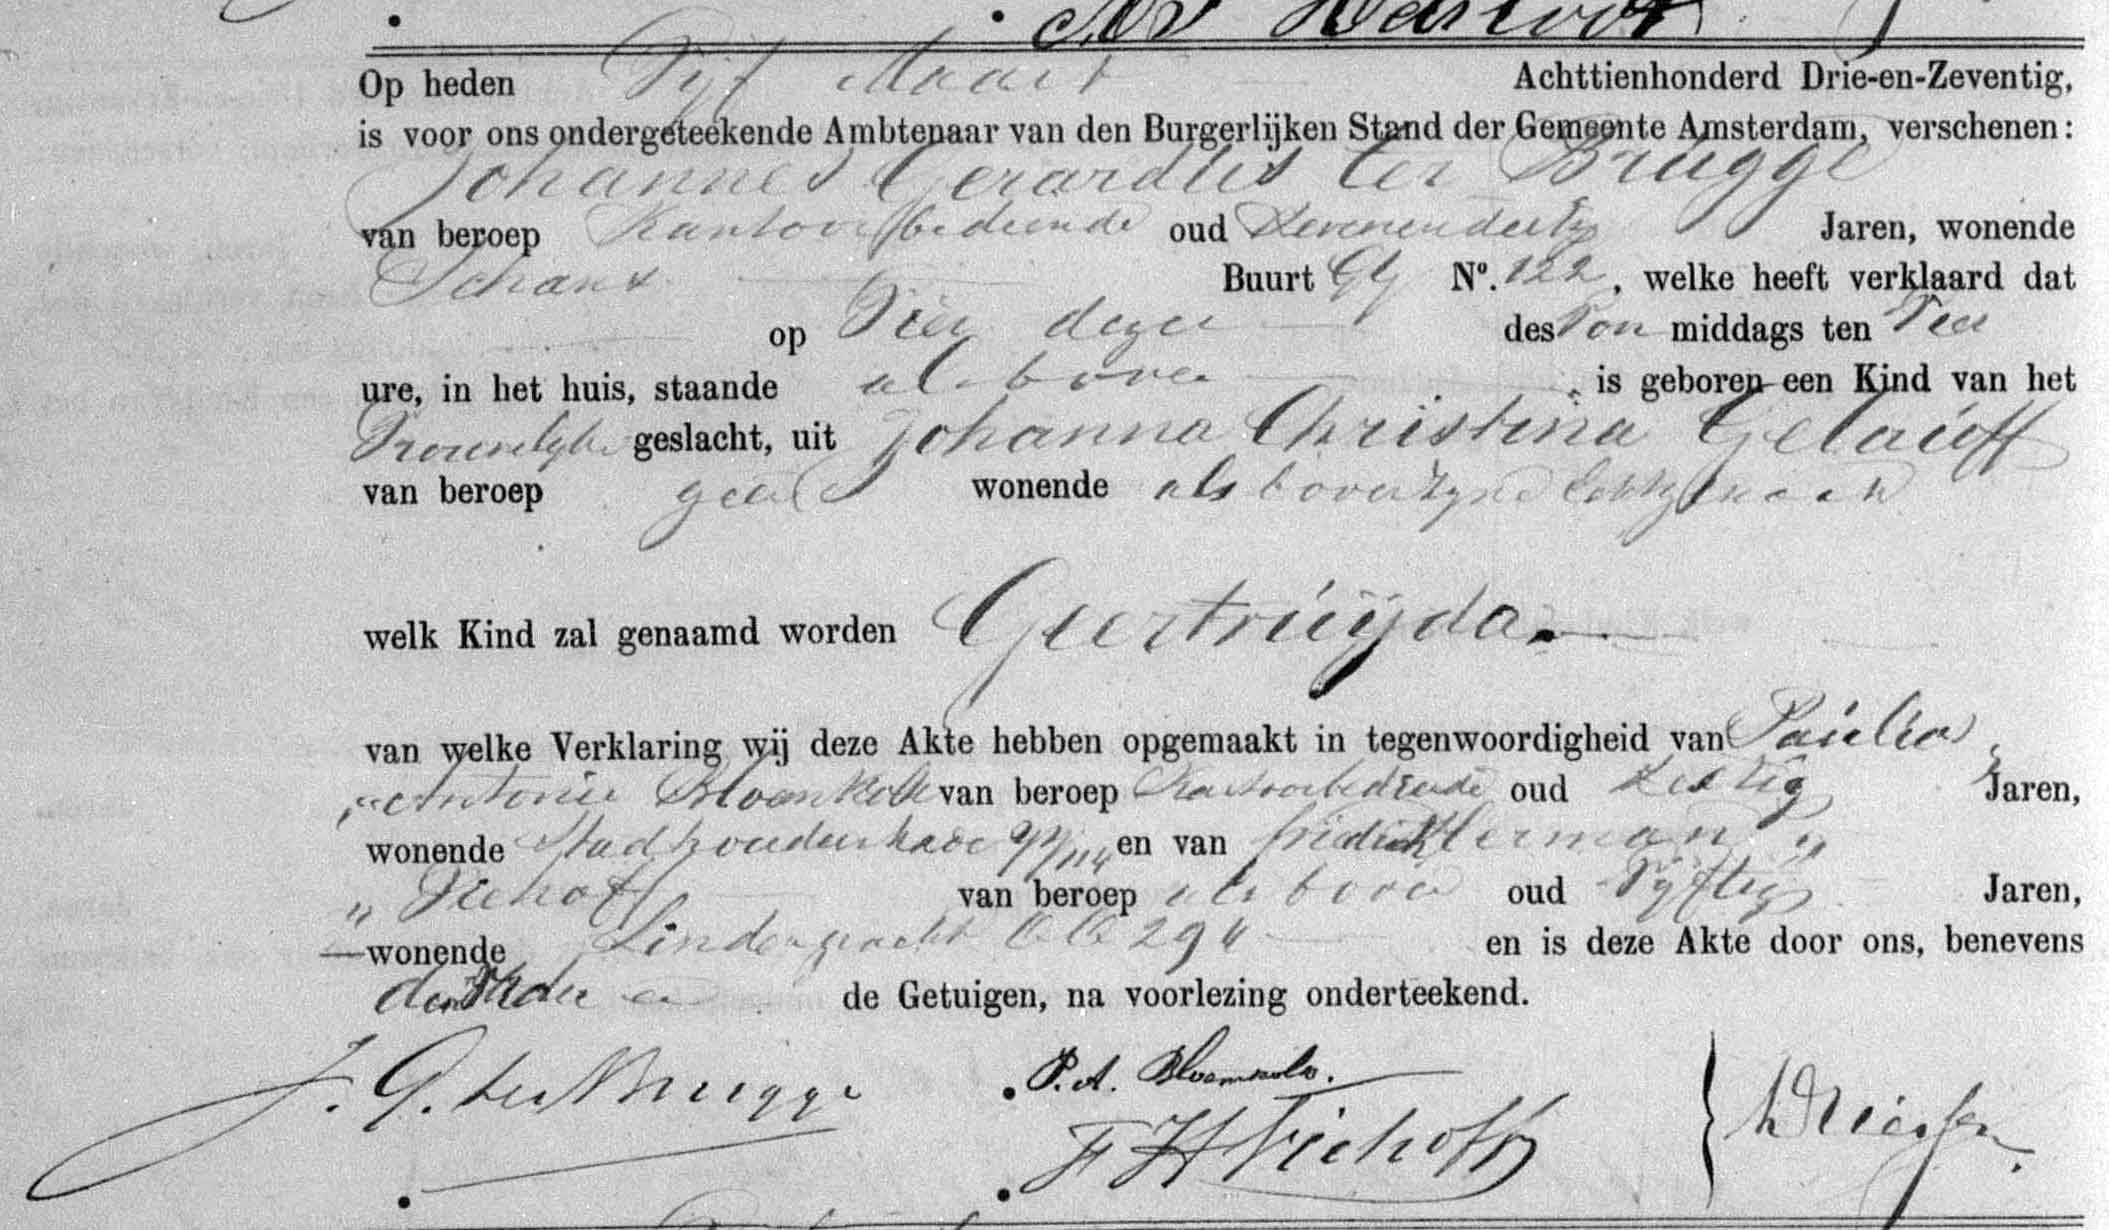 Op heden Vijf Maart Achttienhonderd Drie-en-Zeventig,
is voor ons ondergeteekende Ambtenaar van den Burgerlijken Stand der Gemeente Amsterdam, verschenen:
Johannes Gerardus ter Brugge
van beroep Kantoorbediende oud Zevenendertig Jaren, wonende
Schans Buurt YY No. 122, welke heeft verklaard dat
op Vier dezer des Voor middags ten Vier
ure, in het huis, staande als boven is geboren een Kind van het
Vrouwelijk geslacht, uit Johanna Christina Gelauff
van beroep geene wonende als boven zijne echtgenoot
welk Kind zal genaamd worden Geertruijda.
van welke Verklaring wij deze Akte hebben opgemaakt in tegenwoordigheid van Paulus
Antonie Bloemkolk van beroep Kantoorbediende oud Zestig Jaren,
wonende Stadhouderskade YY/114 en van Fridrich Herman
Viehoff van beroep als boven oud Vijftig Jaren,
wonende Lindengracht 294 en is deze Akte door ons, benevens
den Vader en de Getuigen, na voorlezing onderteekend.
J. G. ter Brugge P. A. Bloemkolk.
F H Viehoff